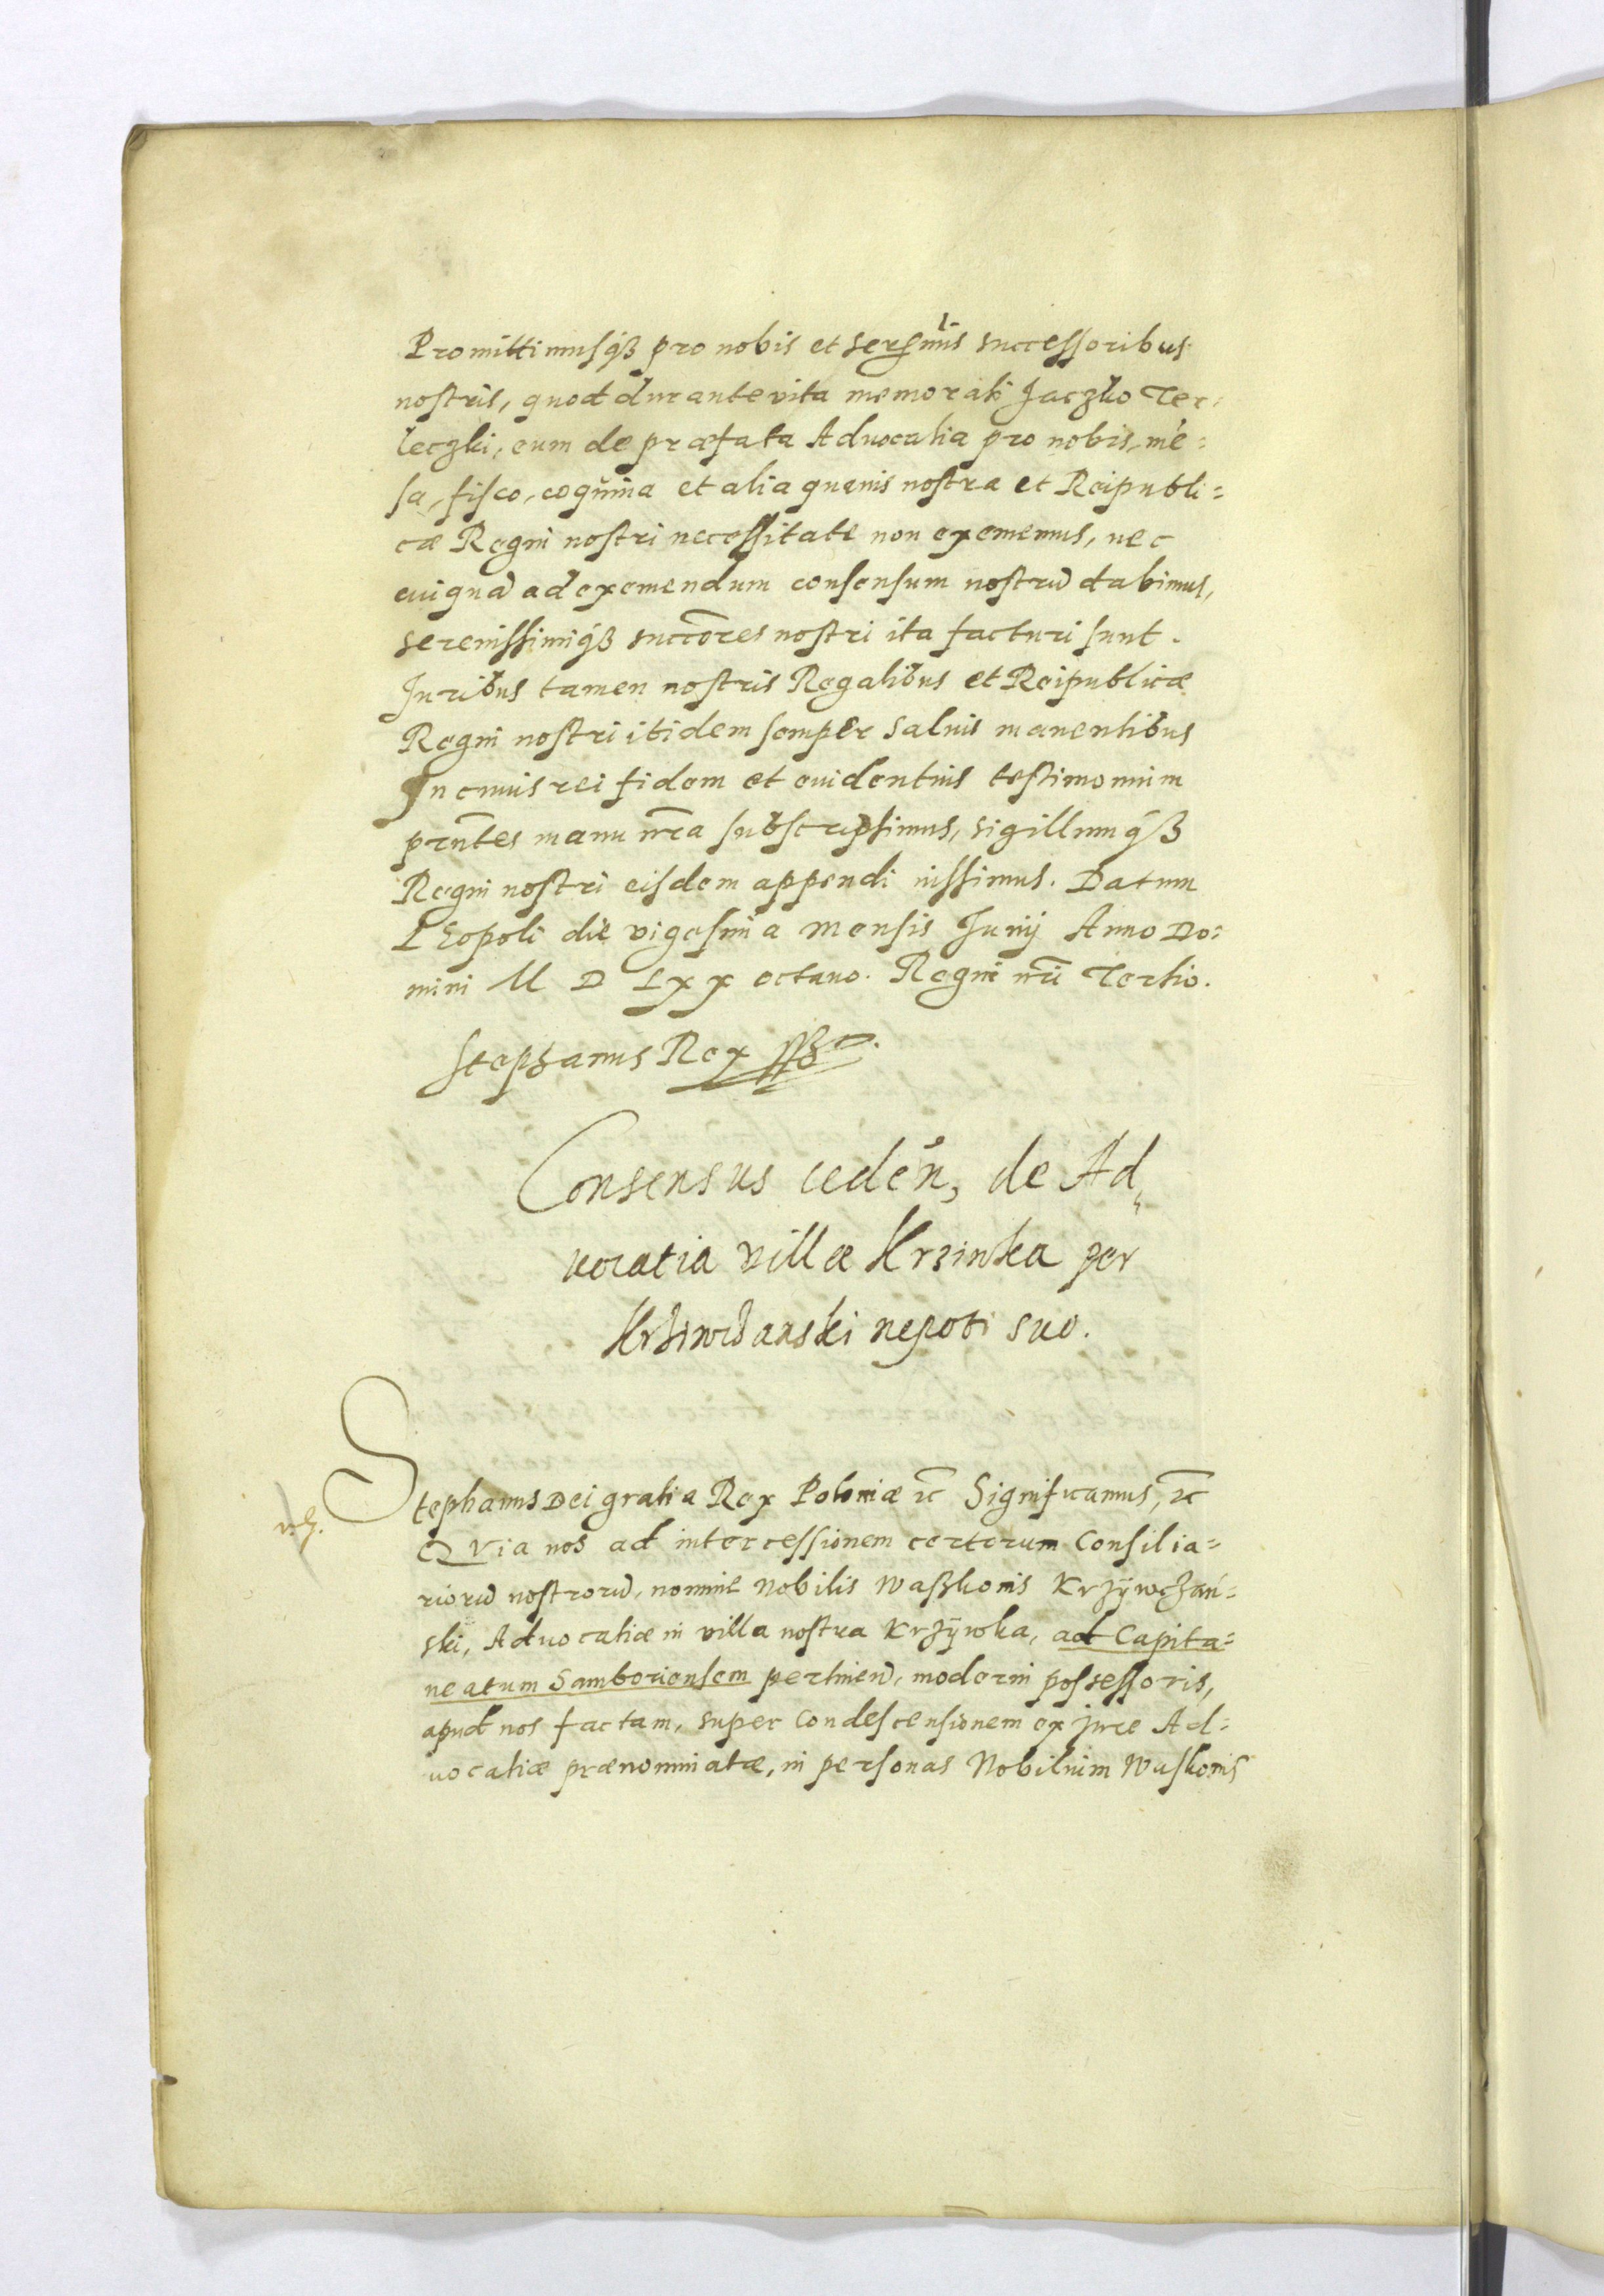 Promittimusq́ꝫ pro nobis et sereniss successoribus
nostris, quod durante vita memorati Jaczko Ter=
leczki, eum de præfata Aduocatia pro nobis, mē=
sa, fisco, coquina et alia quauis nostra et Reipubli=
cæ Regni nostri necessitate non eximemus, nec
cuiquā ad eximendum consensum nostrū dabimus,
serenissimiq́ꝫ succōres nostri ita facturi sunt.
Juribus tamen nostris Regalibus et Reipublicæ
Regni nostri ibidem semper saluis manentibus
In cuius rei fidem et euidentius testimonium
prn̄tes manu nr̄a subscripsimus, sigillumq́ꝫ
Regni nostri eisdem appendi iussimus. Datum
LEopoli die vigesima mensis Junij Anno Do=
mini M D Lxx octauo. Regni nr̄i Tertio.
Stephanus Rex
Consensus ceden, de Ad„
uocatia villæ Krziwka per
Krziwczanski nepoti suo.
Stephanus Dei gratia Rex Poloniæ ꝛc̄ Significamus, ꝛc̄
QVia nos ad intercessionem certorum Consilia=
riorū nostrorū, nomine Nobilis Waszkonis Krzÿwczań=
ski, Aduocatiæ in villa nostra Krzÿwka, ad Capita=
neatum Samboriensem pertinen̄, moderni possessoris,
apud nos factam, super Condescensionem ex jure Ad=
uocatiæ prænominatæ, in personas Nobilium Waskonis